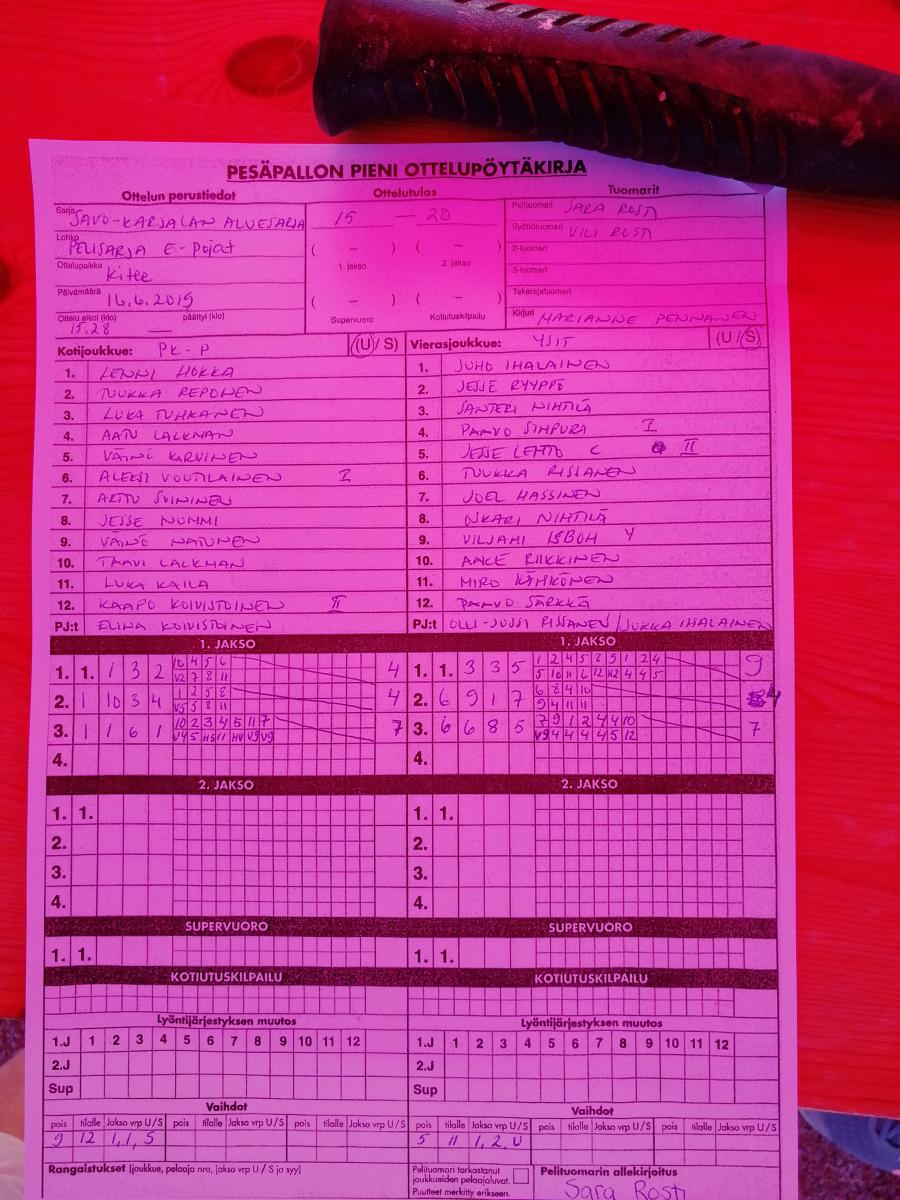 PESÄPALLON PIENI OTTELUPÖYTÄKIRJA
Ottelun perustiedot
Sarja SAVO-KARJALAN ALUESARJA
Lohko PELISARJA E-Pojat
Ottelupaikka Kitee
Päivämäärä 16.6.2019
Ottelu alkoi (klo) päättyi (klo)
15.28 —
Ottelutulos
15 — 20
( – ) ( – )
1. jakso 2. jakso
( – ) ( – )
Supervuoro Kotiutuskilpailu
Tuomarit
Pelituomari SARA ROSTI
Syöttötuomari VILI ROSTI
2-tuomari
3-tuomari
Takarajatuomari
Kirjuri MARIANNE PENNANEN
Kotijoukkue: PK-P (U/S)
1. LENNI HOKKA
2. TUUKKA REPONEN
3. LUKA TUHKANEN
4. AATU LALKMAN
5. VÄINÖ KARVINEN
6. ALEKSI VOUTILAINEN I
7. ARTTU SOININEN
8. JESSE NUMMI
9. VÄINÖ MATUNEN
10. TAAVI LALKMAN
11. LUKA KAILA
12. KAAPO KOIVISTOINEN II
PJ:t ELINA KOIVISTOINEN
Vierasjoukkue: YSIT (U/S)
1. JUHO IHALAINEN
2. JESSE RYYPPÖ
3. SANTERI NIHTILÄ
4. PAAVO SIMPURA I
5. JESSE LEHTO C II
6. TUUKKA RISSANEN
7. JOEL HASSINEN
8. OSKARI NIHTILÄ
9. VILJAMI ISBOM Y
10. AAKE RIIKKINEN
11. MIRO KÄHKÖNEN
12. PAAVO SÄRKKÄ
PJ:t OLLI-JUSSI RISSANEN / JUKKA IHALAINEN
1. JAKSO
1. 1. 1 3 2 10 4 5 6 4
V2 7 8 11
2. 1 10 3 4 1 2 5 8 4
V5 5 8 11
3. 1 1 6 1 10 2 3 4 5 11 7 7
V4 5 H5 11 H4 V9 V9
4.
1. JAKSO
1. 1. 3 3 5 1 2 4 5 8 9 1 2 4 9
5 10 11 6 12 H2 4 4 5
2. 6 9 1 7 6 8 4 10 4
9 4 11 11
3. 6 6 8 5 7 9 1 2 4 4 10 7
V9 4 4 4 4 5 12
4.
2. JAKSO
1. 1.
2.
3.
4.
2. JAKSO
1. 1.
2.
3.
4.
SUPERVUORO
1. 1.
SUPERVUORO
1. 1.
KOTIUTUSKILPAILU
KOTIUTUSKILPAILU
Lyöntijärjestyksen muutos
1.J 1 2 3 4 5 6 7 8 9 10 11 12
2.J
Sup
Lyöntijärjestyksen muutos
1.J 1 2 3 4 5 6 7 8 9 10 11 12
2.J
Sup
Vaihdot
pois tilalle Jakso vrp U/S pois tilalle Jakso vrp U/S pois tilalle Jakso vrp U/S
9 12 1,1,S
Vaihdot
pois tilalle Jakso vrp U/S pois tilalle Jakso vrp U/S pois tilalle Jakso vrp U/S
5 11 1,2.U
Rangaistukset (joukkue, pelaaja nro, jakso vrp U/S ja syy)
Pelituomari tarkastanut
joukkueiden pelaajaluvat.
Puutteet merkitty erikseen.
Pelituomarin allekirjoitus
Sara Rosti